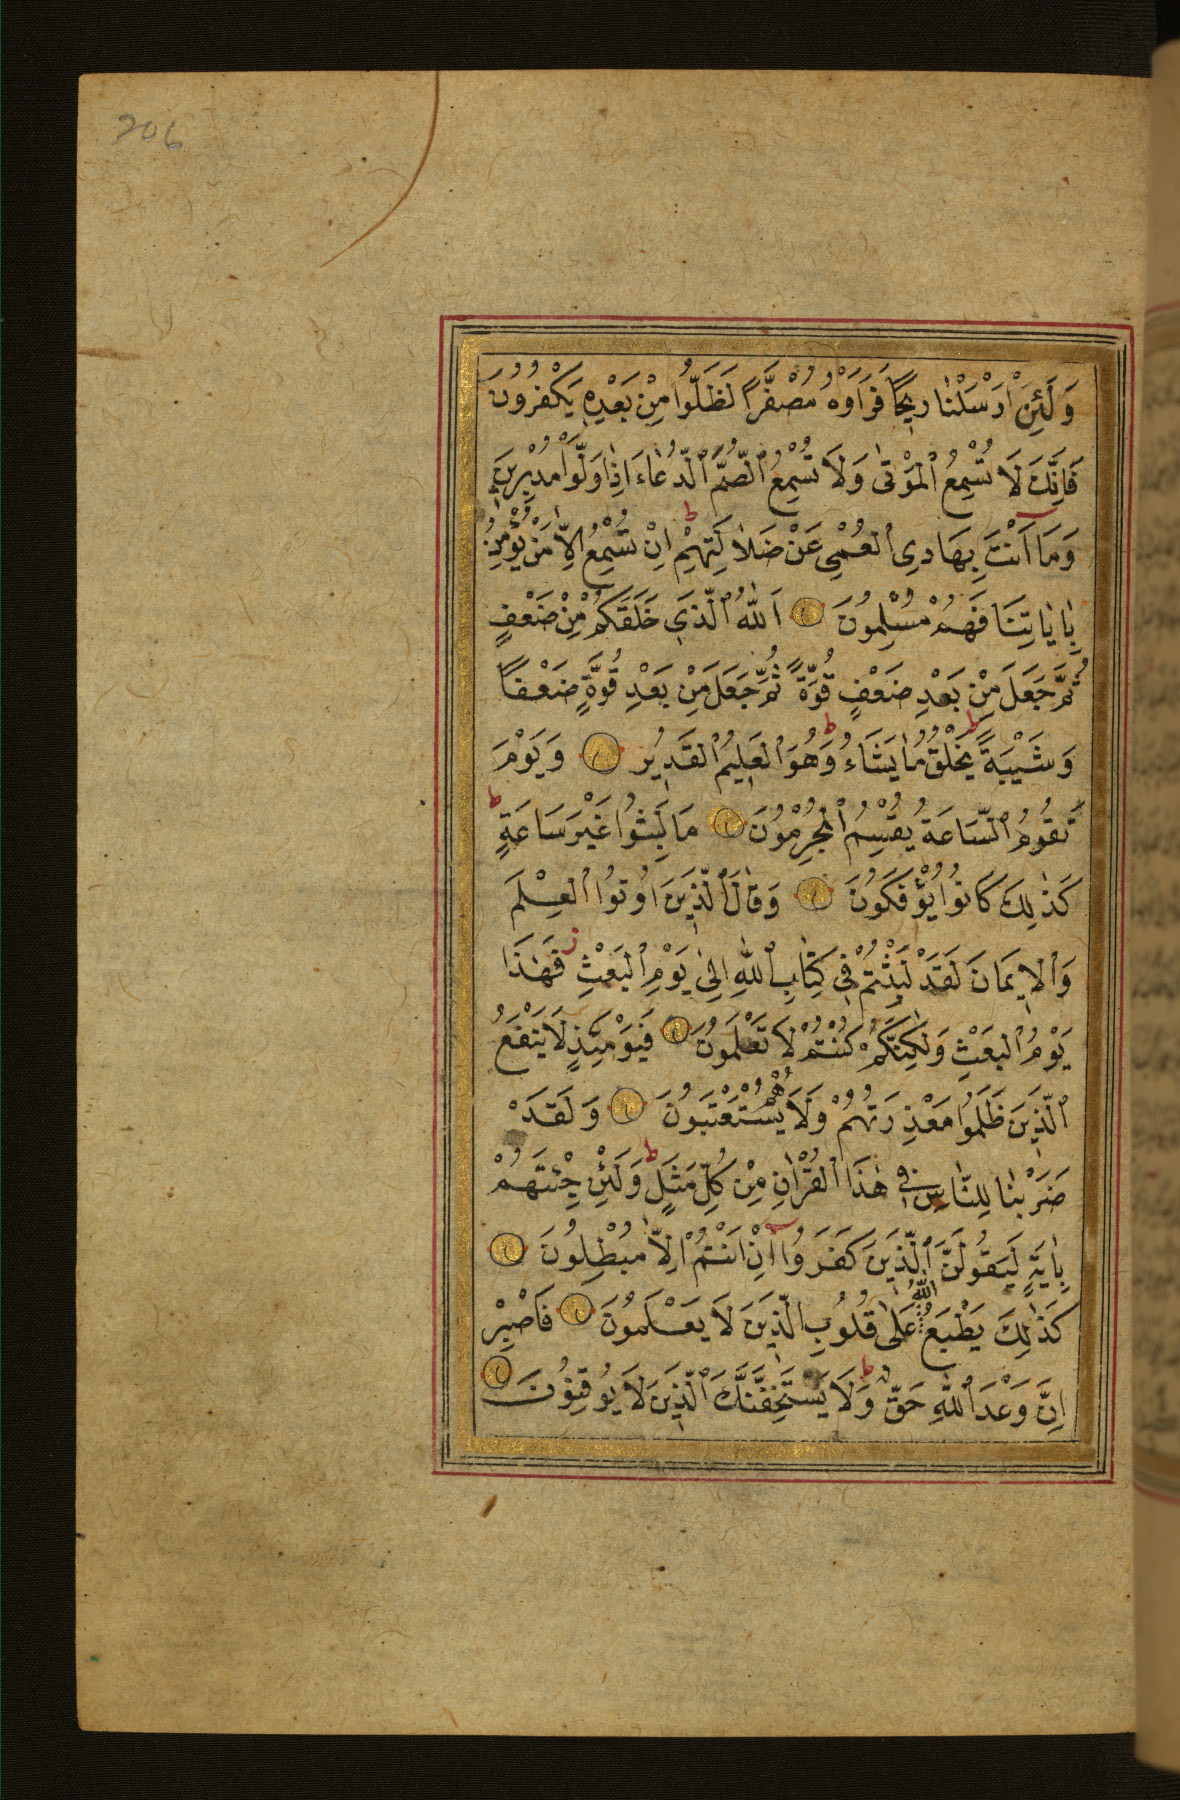 206
وَلَئِنْ اَرْسَلْنَا رِيحًا فَرَاَوْهُ مُصْفَرًّا لَظَلُّوا مِنْ بَعْدِهِ يَكْفُرُونَ
فَاِنَّكَ لَا تُسْمِعُ الْمَوْتٰى وَلَا تُسْمِعُ الصُّمَّ الدُّعَاءَ اِذَا وَلَّوْا مُدْبِرِينَ
وَمَا اَنْتَ بِهَادِى الْعُمْىِ عَنْ ضَلَالَتِهِمْ ط اِنْ تُسْمِعُ اِلَّا مَنْ يُؤْمِنُ
بِاٰيَاتِنَا فَهُمْ مُسْلِمُونَ اَللّٰهُ الَّذِى خَلَقَكُمْ مِنْ ضَعْفٍ
ثُمَّ جَعَلَ مِنْ بَعْدِ ضَعْفٍ قُوَّةً ثُمَّ جَعَلَ مِنْ بَعْدِ قُوَّةٍ ضَعْفًا
وَشَيْبَةً ط يَخْلُقُ مَا يَشَاءُ ط وَهُوَ الْعَلِيمُ الْقَدِيرُ وَيَوْمَ
تَقُومُ السَّاعَةُ يُقْسِمُ الْمُجْرِمُونَ مَا لَبِثُوا غَيْرَ سَاعَةٍ ط
كَذٰلِكَ كَانُوا يُؤْفَكُونَ وَقَالَ الَّذِينَ اُوتُوا الْعِلْمَ
وَالْاِيمَانَ لَقَدْ لَبِثْتُمْ فِى كِتَابِ اللّٰهِ اِلٰى يَوْمِ الْبَعْثِ ز فَهٰذَا
يَوْمُ الْبَعْثِ وَلٰكِنَّكُمْ كُنْتُمْ لَا تَعْلَمُونَ فَيَوْمَئِذٍ لَا يَنْفَعُ
الَّذِينَ ظَلَمُوا مَعْذِرَتُهُمْ وَلَا هُمْ يُسْتَعْتَبُونَ وَلَقَدْ
ضَرَبْنَا لِلنَّاسِ فِى هٰذَا الْقُرْاٰنِ مِنْ كُلِّ مَثَلٍ ط وَلَئِنْ جِئْتَهُمْ
بِاٰيَةٍ لَيَقُولَنَّ الَّذِينَ كَفَرُوا اِنْ اَنْتُمْ اِلَّا مُبْطِلُونَ
كَذٰلِكَ يَطْبَعُ اللّٰهُ عَلٰى قُلُوبِ الَّذِينَ لَا يَعْلَمُونَ فَاصْبِرْ
اِنَّ وَعْدَ اللّٰهِ حَقٌّ ط وَلَا يَسْتَخِفَّنَّكَ الَّذِينَ لَا يُوقِنُونَ